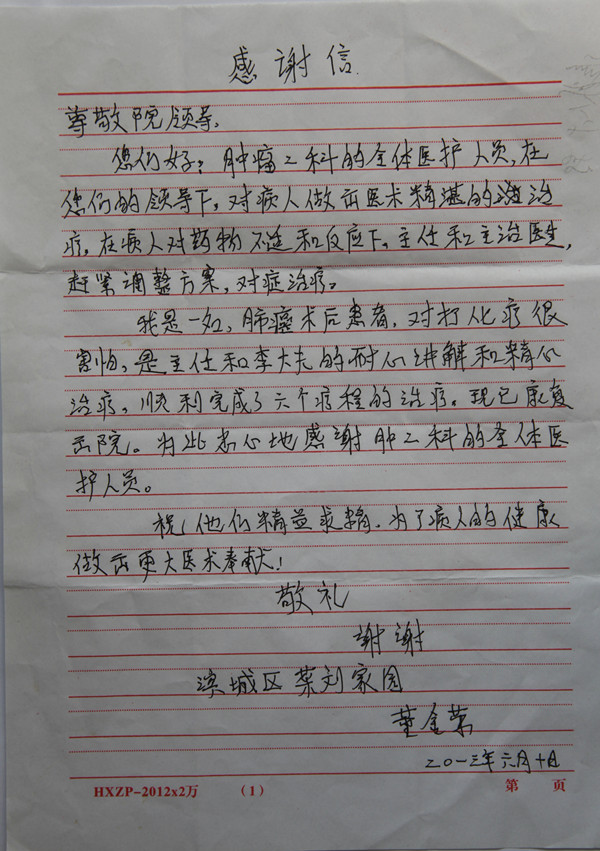 感谢信
尊敬院领导,
您们好: 肿瘤二科的全体医护人员, 在
您们的领导下, 对病人做出医术精堪的治
疗, 在病人对药物不适和反应下, 主任和主治医生,
赶紧调整方案, 对症治疗。
我是一名, 肺癌术后患者, 对打化疗很
害怕, 是主任和李大夫的耐心讲解和精心
治疗, 顺利完成了六个疗程的治疗。现已康复
出院。为此衷心地感谢肿二科的全体医
护人员。
祝他们精益求精, 为了病人的健康
做出更大医术奉献!
敬礼
谢谢
滨城区 菜刘家园
董金荣
二〇一三年六月十日
HXZP-2012x2万 (1) 第 页